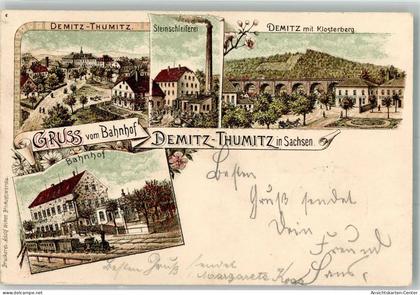 DEMITZ-THUMITZ.
Steinschleiferei
DEMITZ mit Klosterberg.
GRUSS vom Bahnhof
DEMITZ-THUMITZ in Sachsen.
Bahnhof
Besten
Gruß sendet
Dein
Freund
Hans
Besten Gruß sendet
Margarete
© Ansichtskarten-Center